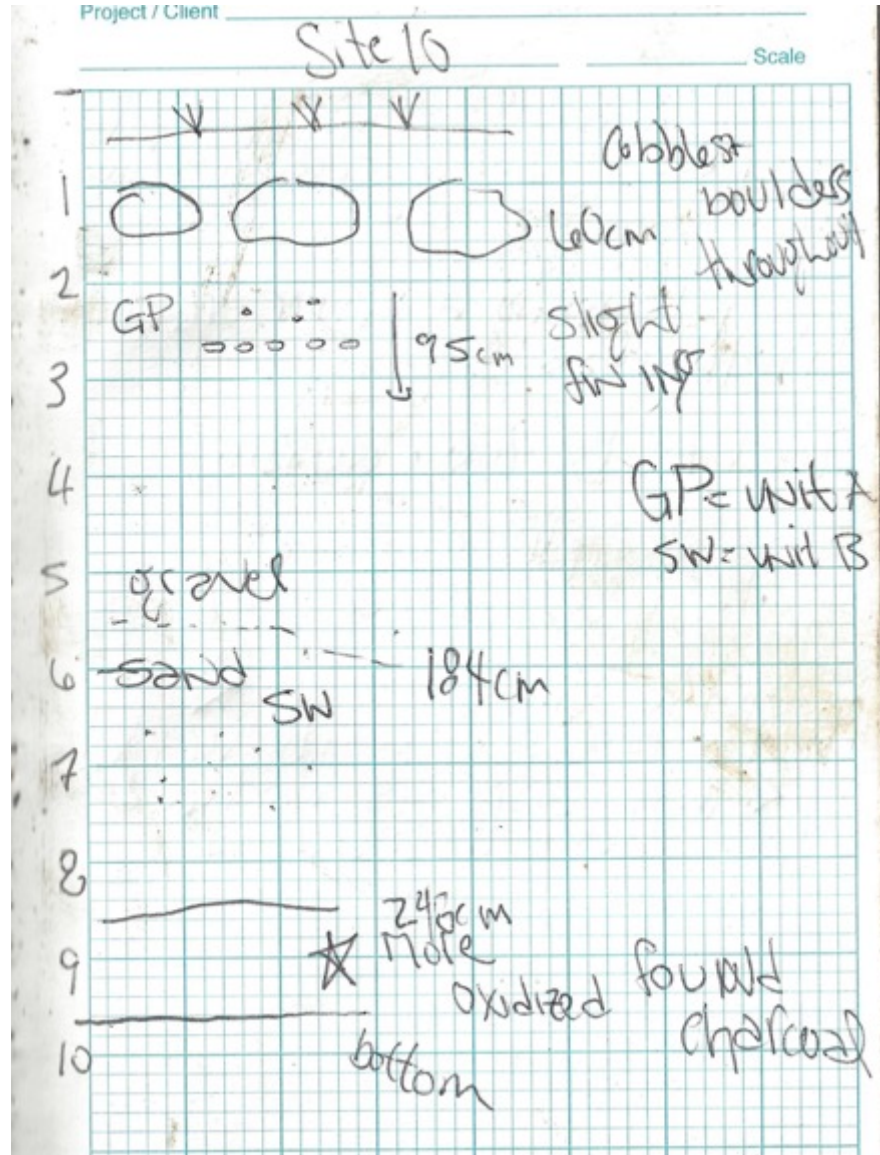 Project / Client
Site 10
Scale
Cobbles +
boulders
throughout
1
60cm
2
GP
95cm
slight
fining
3
4
GP = unit A
SW = unit B
5
gravel
6
sand
184cm
SW
7
8
248cm
9
More
oxidized
found
charcoal
10
bottom